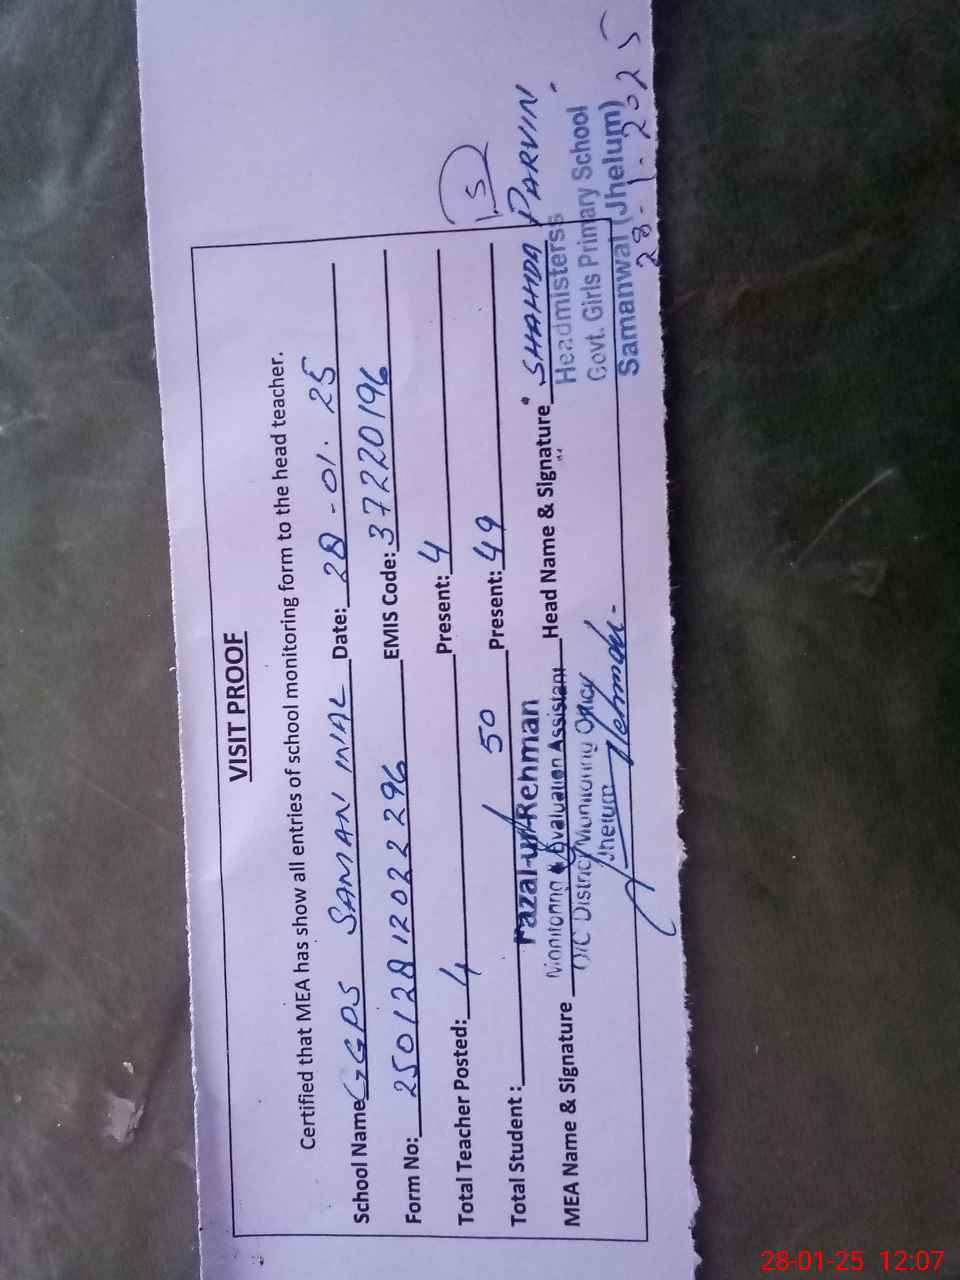 VISIT PROOF
Certified that MEA has show all entries of school monitoring form to the head teacher.
School Name GGPS SAMAN WAL Date: 28-01.25
Form No: 25012812022296 EMIS Code: 37220196
Total Teacher Posted: 4 Present: 4
Total Student: 50 Present: 49
MEA Name & Signature Head Name & Signature SHAHIDA PARVIN
Fazal-ur-Rehman
Monitoring & Evaluation Assistant
O/C District Monitoring Officer
Jhelum
Headmisterss
Govt. Girls Primary School
Samanwal (Jhelum)
28-1-2025
28-01-25 12:07